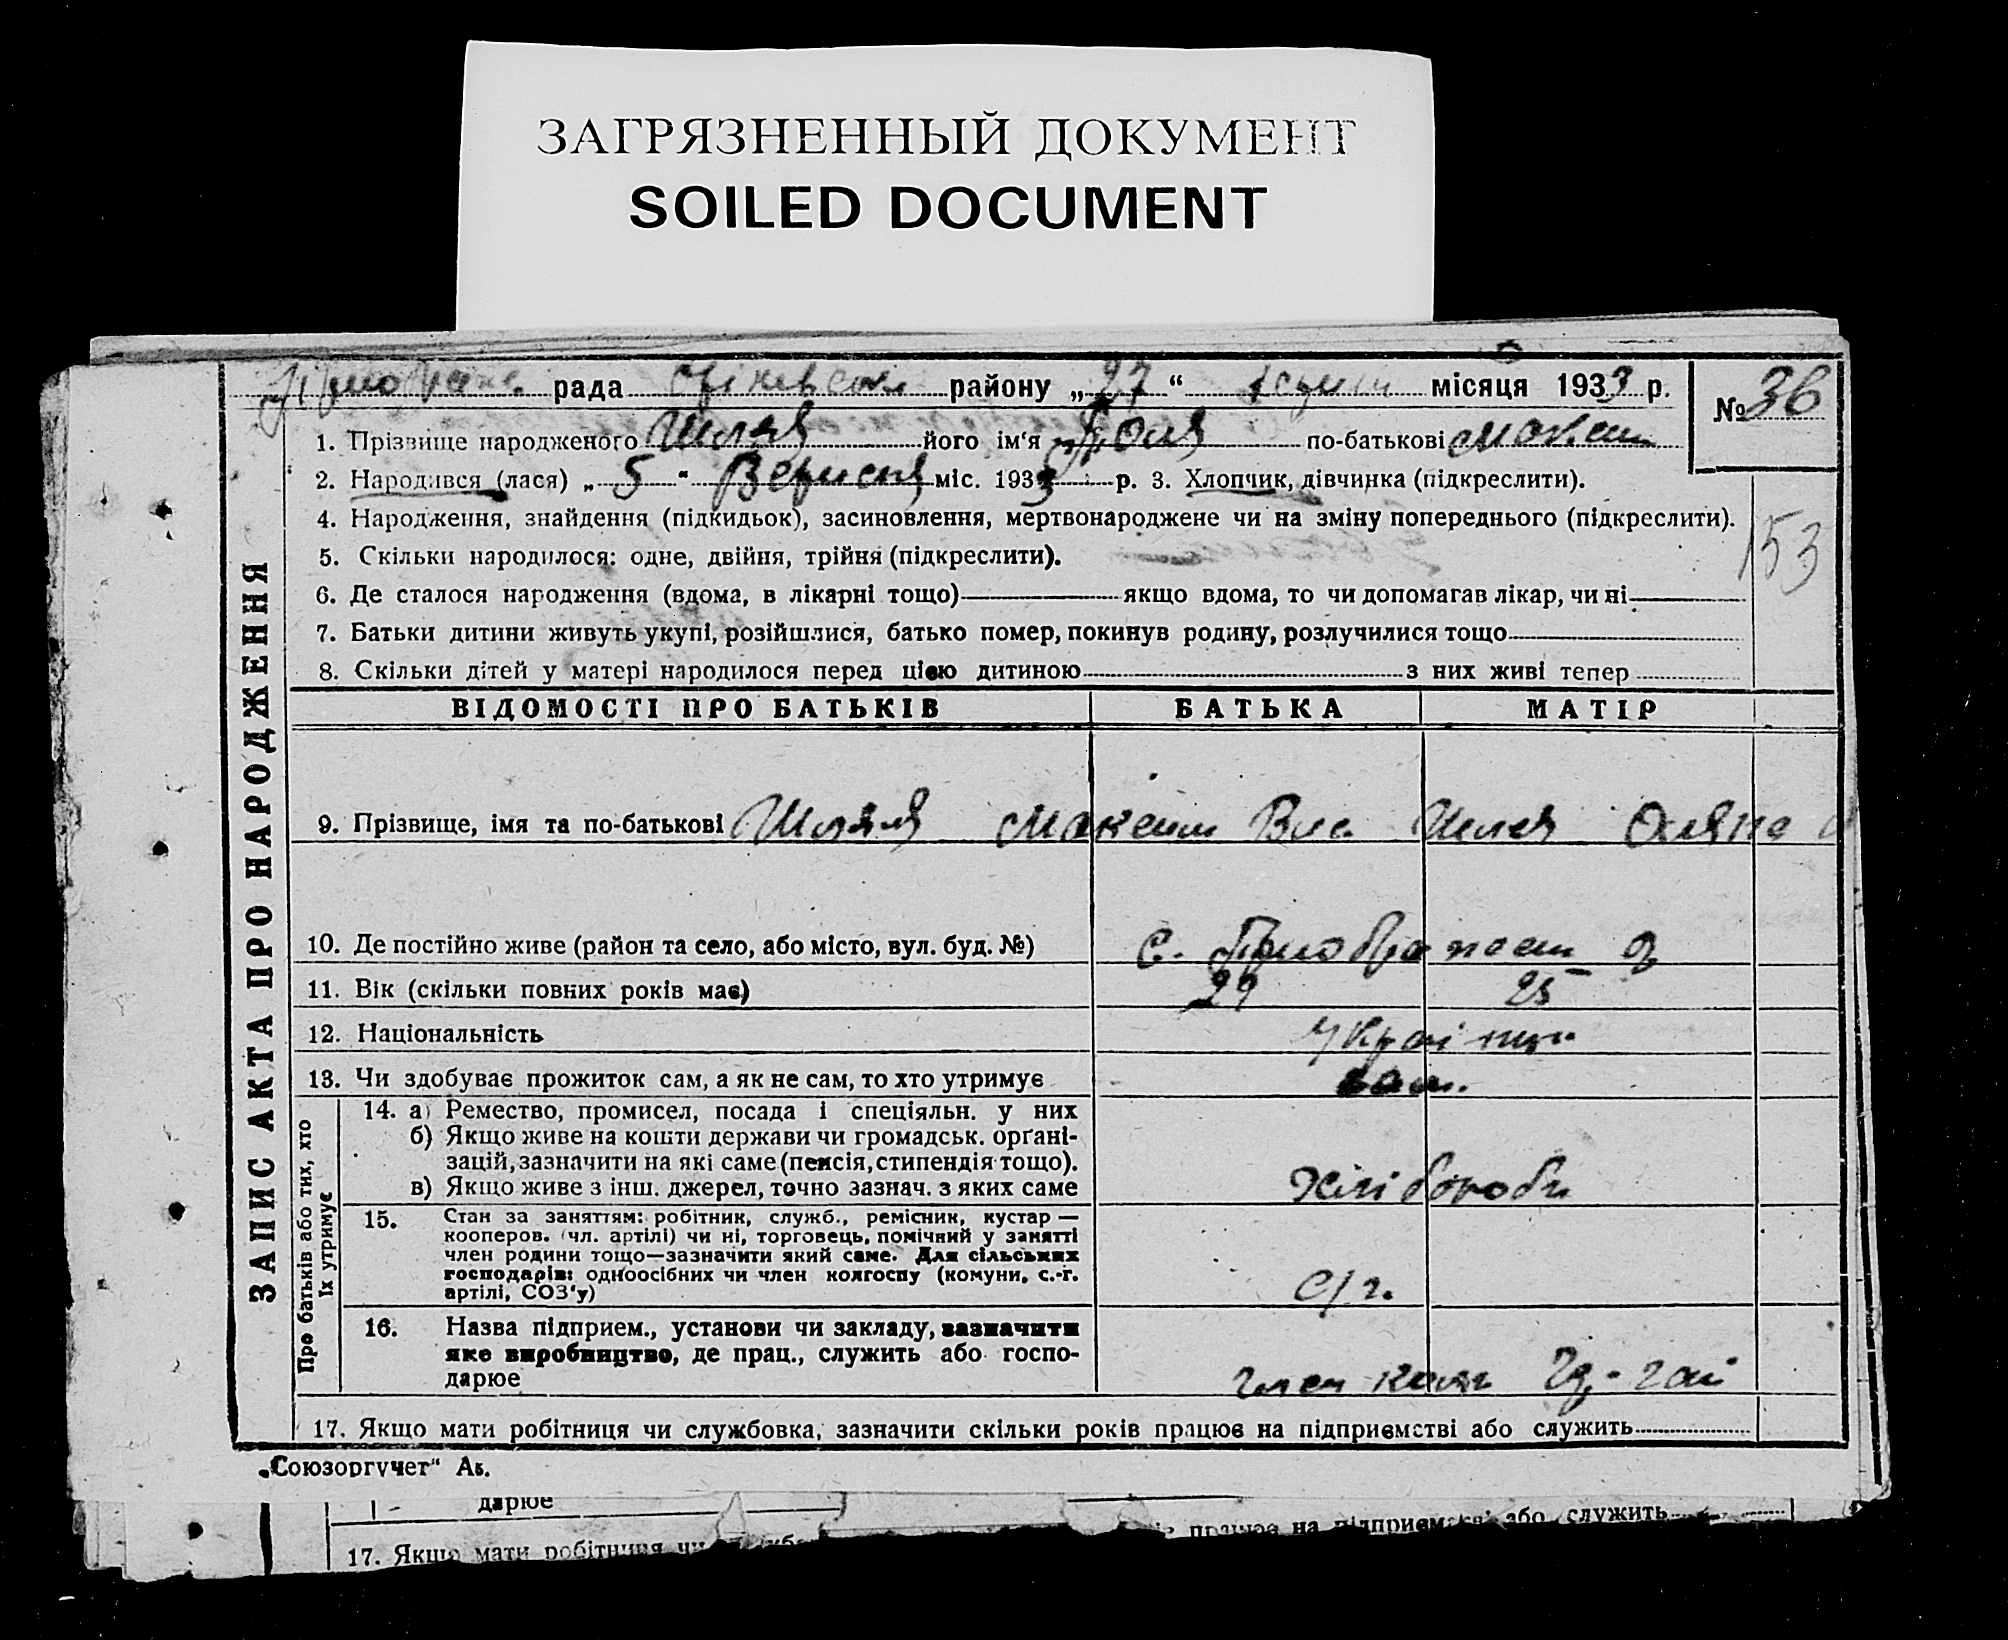 ЗАГРЯЗНЕННЫЙ ДОКУМЕНТ
SOILED DOCUMENT
рада району „27“ місяця 1933 р.
№ 36
1. Прізвище народженого Шляя його ім‘я по-батькові Максим
2. Народився (лася) „5“ Вересня міс. 1933 р. 3. Хлопчик, дівчинка (підкреслити).
4. Народження, знайдення (підкидьок), засиновлення, мертвонароджене чи на зміну попереднього (підкреслити).
153
5. Скільки народилося: одне, двійня, трійня (підкреслити).
6. Де сталося народження (вдома, в лікарні тощо) якщо вдома, то чи допомагав лікар, чи ні
7. Батьки дитини живуть укупі, розійшлися, батько помер, покинув родину, розлучилися тощо
8. Скільки дітей у матері народилося перед цією дитиною з них живі тепер
ЗАПИС АКТА ПРО НАРОДЖЕННЯ
ВІДОМОСТІ ПРО БАТЬКІВ БАТЬКА МАТІР
9. Прізвище, імя та по-батькові Шляя Максим Вас. Шляя Оляна
10. Де постійно живе (район та село, або місто, вул. буд. №) с.
11. Вік (скільки повних років має) 29 25
12. Національність Україн
13. Чи здобуває прожиток сам, а як не сам, то хто утримує сам.
Про батьків або тих, хто
їх утримує
14. а) Ремество, промисел, посада і спеціяльн. у них
б) Якщо живе на кошти держави чи громадськ. органі-
зацій, зазначити на які саме (пенсія, стипендія тощо).
в) Якщо живе з інш. джерел, точно зазнач. з яких саме Хліборобн
15. Стан за заняттям: робітник, служб., ремісник, кустар —
кооперов. (чл. артілі) чи ні, торговець, помічний у занятті
член родини тощо—зазначити який саме. Для сільських
господарів: одноосібних чи член колгоспу (комуни, с.-г.
артілі, СОЗ‘у) С/г.
16. Назва підприєм., установи чи закладу, зазначити
яке виробництво, де прац., служить або госпо-
дарює член
17. Якщо мати робітниця чи службовка, зазначити скільки років працює на підприємстві або служить
„Союзоргучет“
дарює
працює на підприєм або служить
17. Якщо мати робітниця чи